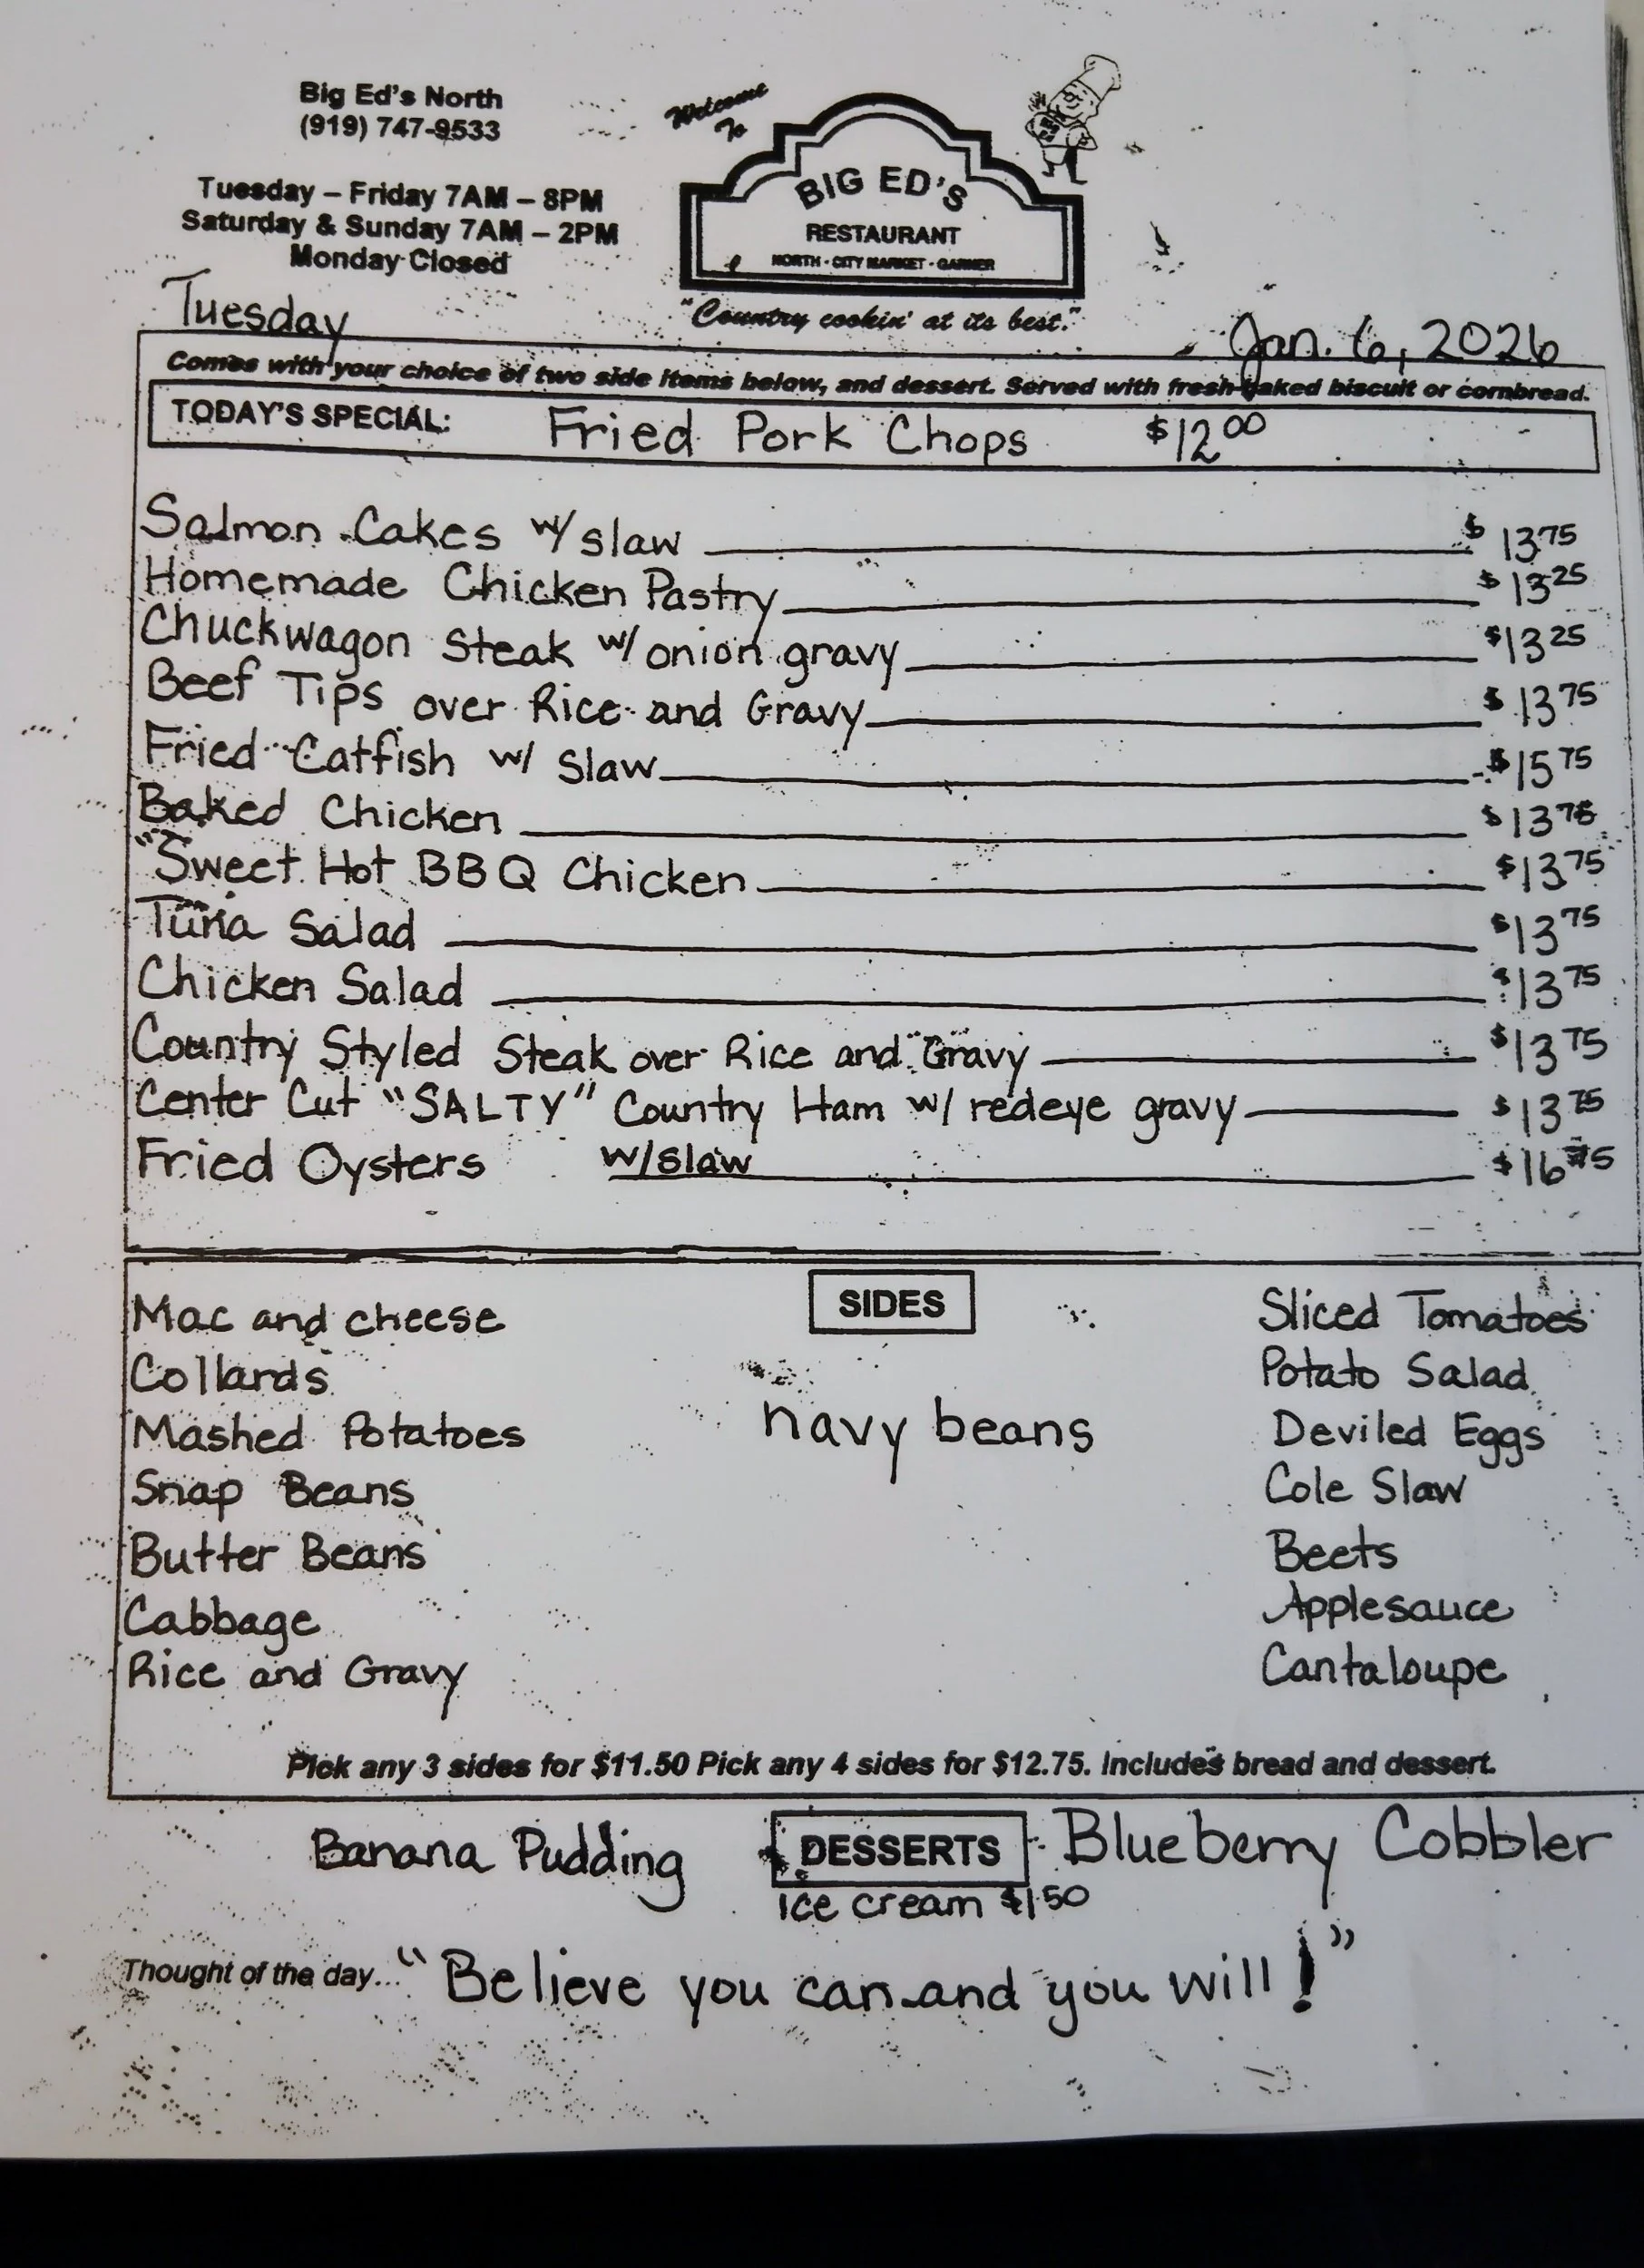 Big Ed's North
(919) 747-9533
Tuesday – Friday 7AM – 8PM
Saturday & Sunday 7AM – 2PM
Monday Closed
Welcome
To
BIG ED'S
RESTAURANT
NORTH - CITY MARKET - GARNER
"Country cookin' at its best."
Tuesday
Jan. 6, 2026
Comes with your choice of two side items below, and dessert. Served with fresh baked biscuit or cornbread.
TODAY'S SPECIAL: Fried Pork Chops $12.00
Salmon Cakes w/ slaw $13.75
Homemade Chicken Pastry $13.25
Chuckwagon Steak w/ onion gravy $13.25
Beef Tips over Rice and Gravy $13.75
Fried Catfish w/ Slaw $15.75
Baked Chicken $13.75
"Sweet Hot BBQ Chicken $13.75
Tuna Salad $13.75
Chicken Salad $13.75
Country Styled Steak over Rice and Gravy $13.75
Center Cut "SALTY" Country Ham w/ redeye gravy $13.75
Fried Oysters w/slaw $16.75
SIDES
Mac and cheese
Collards
Mashed Potatoes
Snap Beans
Butter Beans
Cabbage
Rice and Gravy
navy beans
Sliced Tomatoes
Potato Salad
Deviled Eggs
Cole Slaw
Beets
Applesauce
Cantaloupe
Pick any 3 sides for $11.50 Pick any 4 sides for $12.75. Includes bread and dessert.
Banana Pudding DESSERTS Blueberry Cobbler
ice cream $1.50
Thought of the day... "Believe you can and you will!"